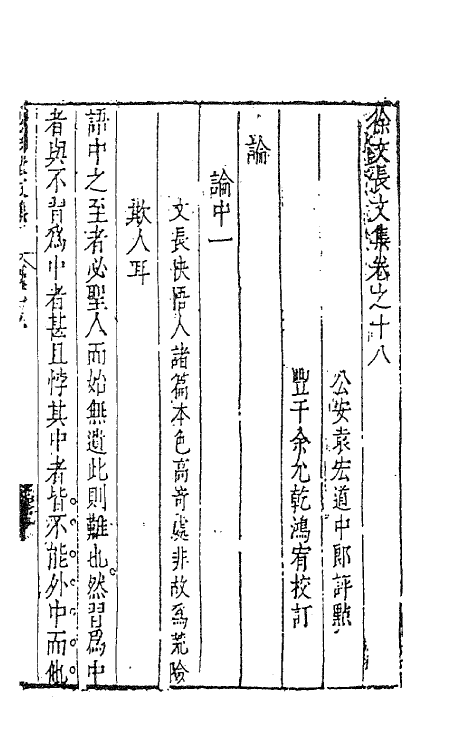 徐文長文集卷之十八
公安袁宏道中郎評點
豐干余允乾鴻宥校訂
論
論中一
文長快悟人諸篇本色高奇處非故為荒險
欺人耳
語中之至者必聖人而始無遺此則難也。然習為中
者與不習為中者甚且悖其中者皆。不。能。外。中。而。他。